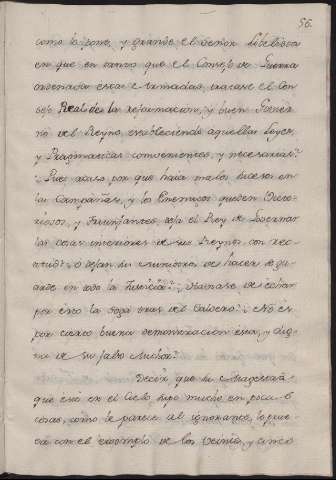 56.
como lo pone, y grande el Señor
en que en tanto que el Consejo de Guerra
ordenava estas jornadas, tratase el Con
sejo Real de la reformacion, y buen Govier
no del Reyno, estableciendo aquellas Leyes,
y Pragmaticas convenientes, y necesarias?
Pues acaso por que haia malos sucesos en
las Campañas, y los Enemigos queden Victo-
riosos, y Triunfantes, deja el Rey de Governar
las cosas interiores de sus Reynos con rec
titud? o dejan sus Ministros de hacer se gu
arde en todo la Justicia?
por esto la soga tras del Caldero? No es
por cierto buena demonstracion esta, y dig
na de su sabio
Decir que su Magestad
que está en el Cielo hizo mucho en pocas
cosas, como le parece al ignorante, lo prue
va con el exemplo de los veinte, y cinco